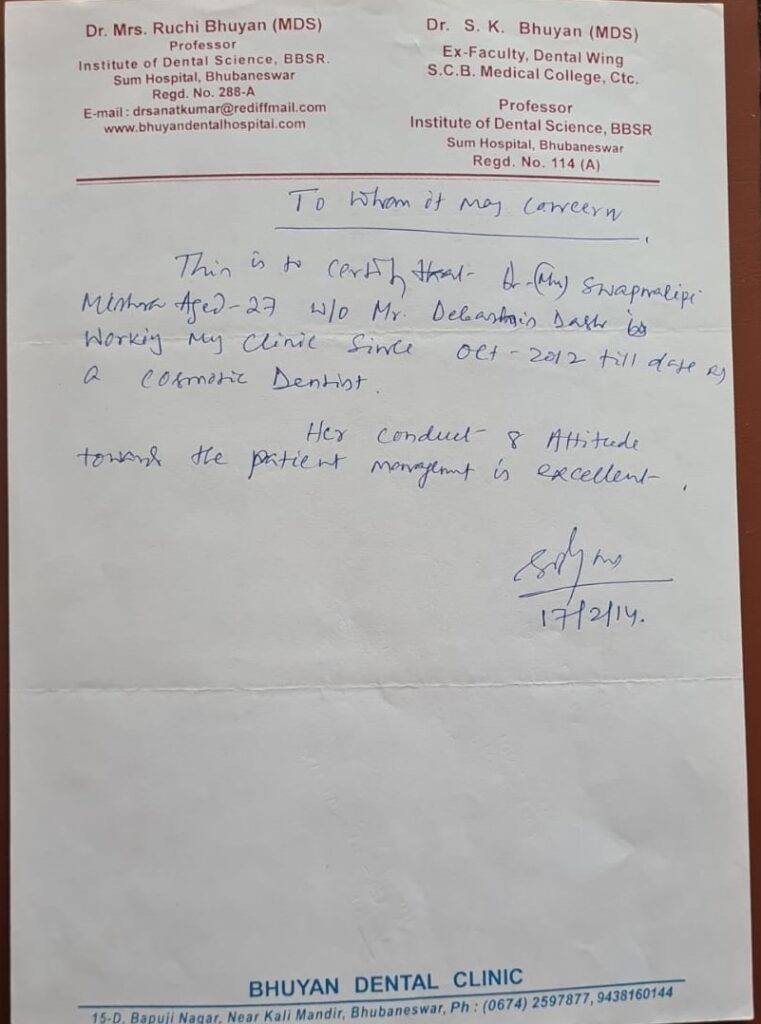 Dr. Mrs. Ruchi Bhuyan (MDS)
Professor
Institute of Dental Science, BBSR.
Sum Hospital, Bhubaneswar
Regd. No. 288-A
E-mail : drsanatkumar@rediffmail.com
www.bhuyandentalhospital.com
Dr. S. K. Bhuyan (MDS)
Ex-Faculty, Dental Wing
S.C.B. Medical College, Ctc.
Professor
Institute of Dental Science, BBSR
Sum Hospital, Bhubaneswar
Regd. No. 114 (A)
To Whom it may concern
This is to certify that Dr. (Mrs) Swapnalipi
Mishra Aged-27 w/o Mr. Debashis Dash is
Working My Clinic Since Oct-2012 till date as
a cosmetic Dentist.
Her conduct & Attitude
towards the patient management is excellent.
17/2/14.
BHUYAN DENTAL CLINIC
15-D, Bapuji Nagar, Near Kali Mandir, Bhubaneswar, Ph : (0674) 2597877, 9438160144